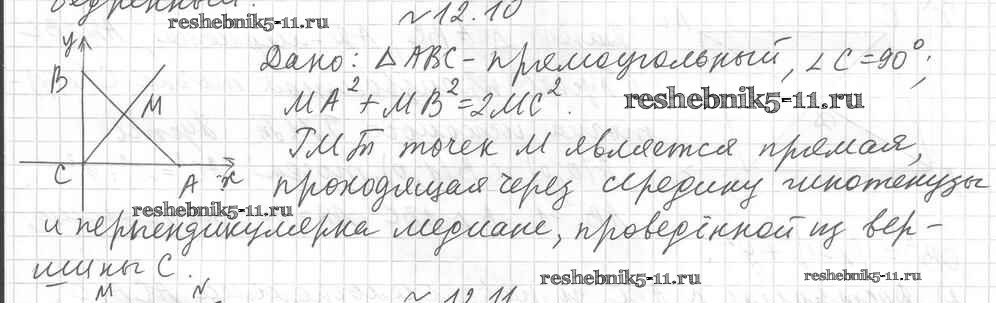 №12.10
reshebnik5-11.ru
y
B
M
C
A
x
Дано: △ABC - прямоугольный, ∠C=90°;
MA²+MB²=2MC².
reshebnik5-11.ru
ГМТ точек M является прямая,
проходящая через середину гипотенузы
reshebnik5-11.ru
и перпендикулярна медиане, проведённой из вер-
шины C.
reshebnik5-11.ru
reshebnik5-11.ru
M N
№12.11